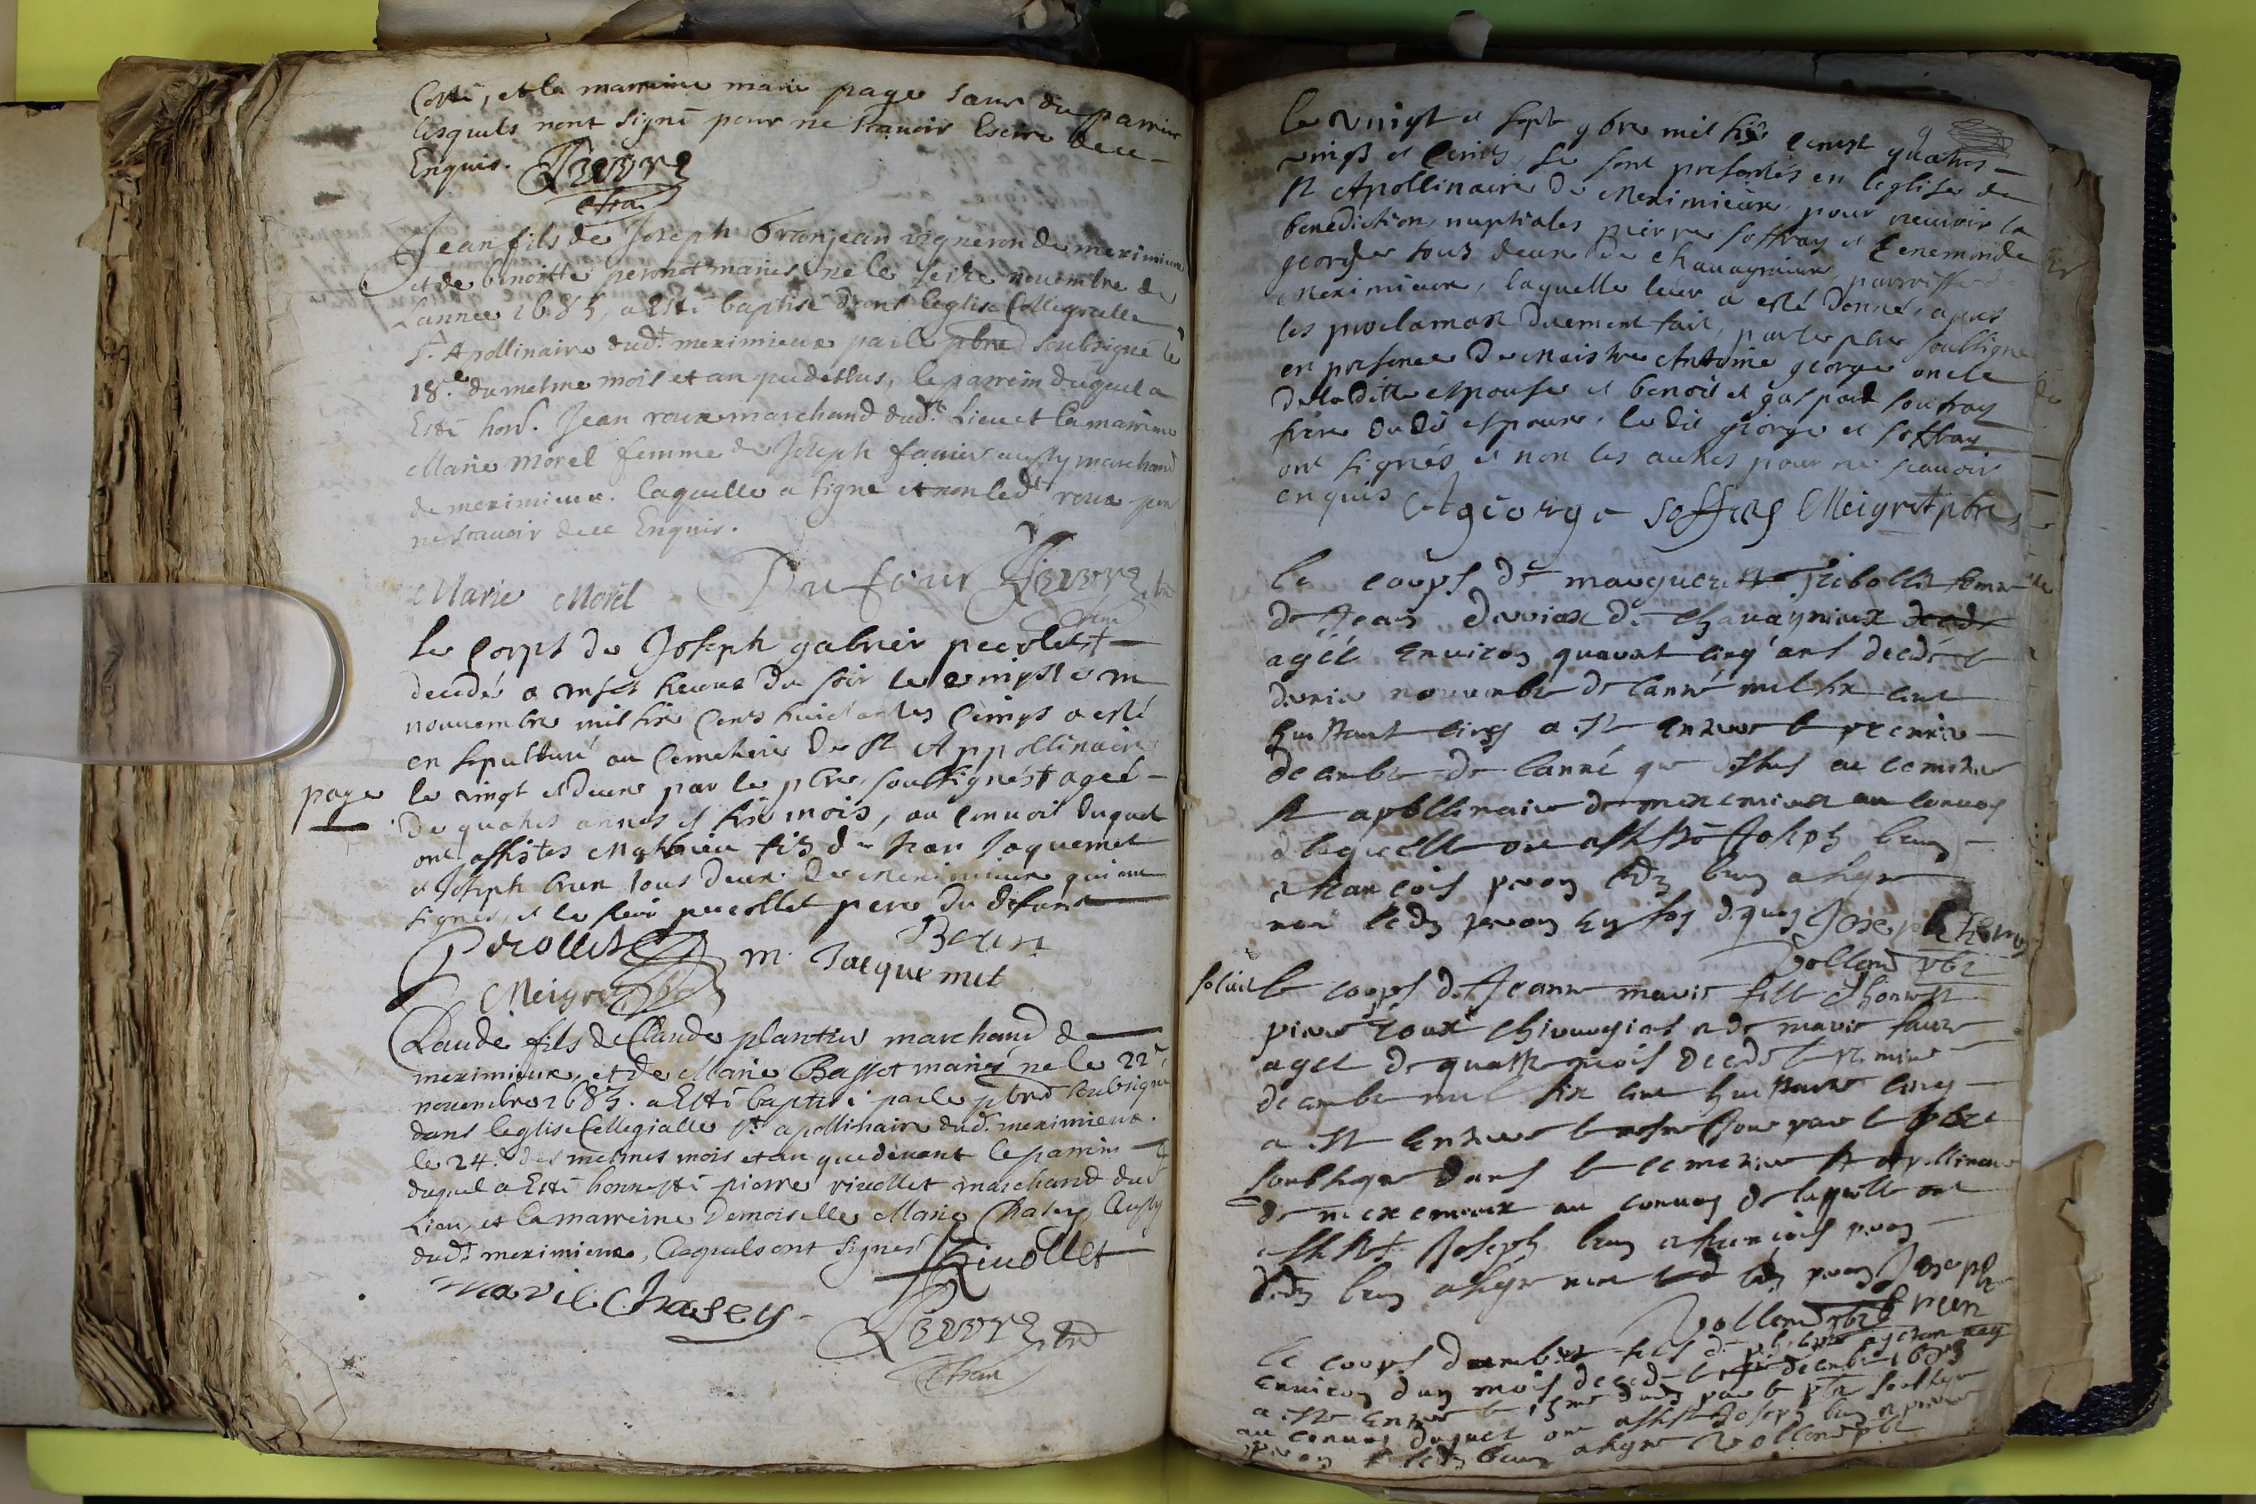 Coste, et la marreine marie page sœur du parrin
lesquels nont signé pour ne scauoir Escrire dece
Enquis.
Jean fils de Joseph branjean vigneron de meximieux
et de benoitte peronet mariés ne le seize nouembre de
Lannee 1685, a Esté baptisé dans leglise Collegialle
St Apollinaire dudt meximieux par le pbre soubsigné le
18e. du mesme mois et an que dessus, le parrein duquel a
Esté hon. Jean roux marchand dudt. Lieu et la marreine
Marie Morel femme de Joseph fauier aussy marchand
de meximieux. laquelle a signe et non ledt roux pour
ne scauoir dece Enquis.
Marie Morel Dufour
le corps de Joseph gabriel pecollet
decedé a heures du soir le vingt et un
nouuembre mil six cens huictantes cinqs a esté
en sepulturé au cemetiere de St Appollinaire
page
le vingt et deux par le pbre soubsigné agé
de quatres annés et six mois, au conuoit duquel
ont assistes Mathieu fils de Jaquemet
et Joseph brun tous deux de meximieux qui ont
signés, et le sieur pecollet pere du defunt
Pecollet m. Jacquemet Brun
Meigret
Claude fils de Claude plantier marchand de
meximieux, et de Marie Basset mariés ne le 22e
nouembre 1685. a Esté baptisé par le pbre soubsigné
dans leglise Collegialle St. apollinaire dudt. meximieux.
le 24. des mesmes mois et an que deuant le parrin
duquel a Esté honneste pierre riuollet marchand dud
Lieu, et la marreine Demoiselle Marie Chasey aussy
dudt meximieux, lesquels ont signés
Riuollet
marie Chasey
le vingt et sept 9bre mil six censt quatres
vingt et cinq, se sont presentés en leglise de
St Apollinaire de Meximieux pour receuoir la
benediction nuptiales pierre soffray et
george tous deux de chauagnieux parroisse
Meximieux, laquelle leur a esté donné, apres
les proclamast duement fait, par le pbre soubsigné
en presence de Maistre Antoine george oncle
de la ditte espouse et benoit et gaspard souffray
frere dudit espoux, le dit george et soffray
ont signés et non les autres pour ne scauoir
enquis A george soffrey Meigret pbre
le corps de marguerite femme
de Jean de chauagnieux
agée enuiron quarant cinq ans decedé le
dernier nouembre de lanné mil six cent
huittant cinq a esté enterré le premier
decembre de lanné que dessus au cemetiere
St apollinaire de meximieux au conuoy
de laquelle ont assisté Joseph brun
et francois peron ledt brun a signe
non ledt peron de quoy Joseph brun
vollerin pbr
le corps de Jeanne marie fille dhonneste
pierre roux chirurgien et de marie faure
agee de quattre mois decede le premier
decembre mil six cent huittante cinq
a esté enterré le mesme Jour par le pbre
soubsigne dans le cemetiere St apollinaire
de meximieux au conuoy de laquelle ont
assisté Joseph brun et francois peron
ledt brun a signe non ledt peron Joseph
brun
le corps dumbert fils de
enuiron dun mois decede le decembre 1685
a esté enterré le par le pbr soubsigne
au conuoy duquel ont assisté Joseph brun et pierre
peron ledt brun a signe vollerin pbr